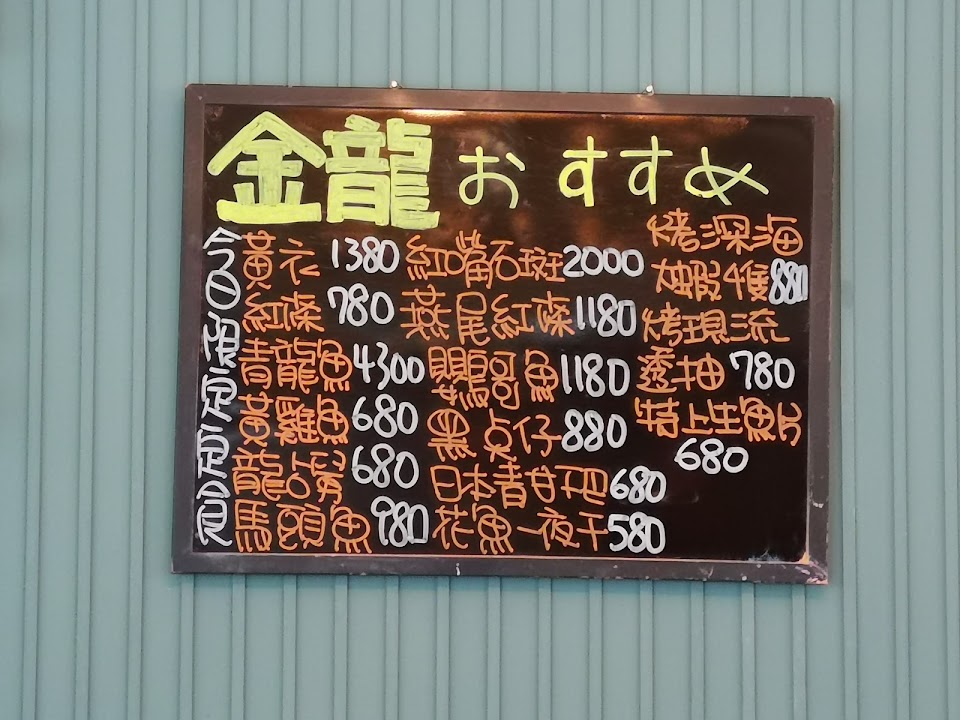 金龍 おすすめ
今日
黃衣 1380
紅條 780
青龍魚 4300
黃雞魚 680
龍占 680
馬頭魚 980
紅嘴石斑 2000
燕尾紅條 1180
鸚哥魚 1180
黑点仔 880
日本青 680
花魚一夜干 580
烤深海
蝦 880
烤現流
透抽 780
特上生魚片
680